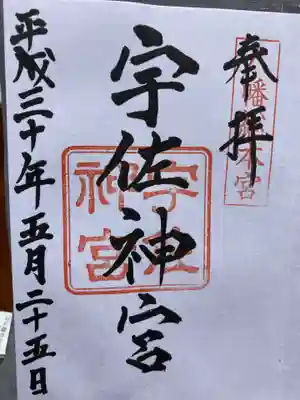 奉拝
八幡總本宮
宇佐神宮
宇佐神宮
平成三十年五月二十五日